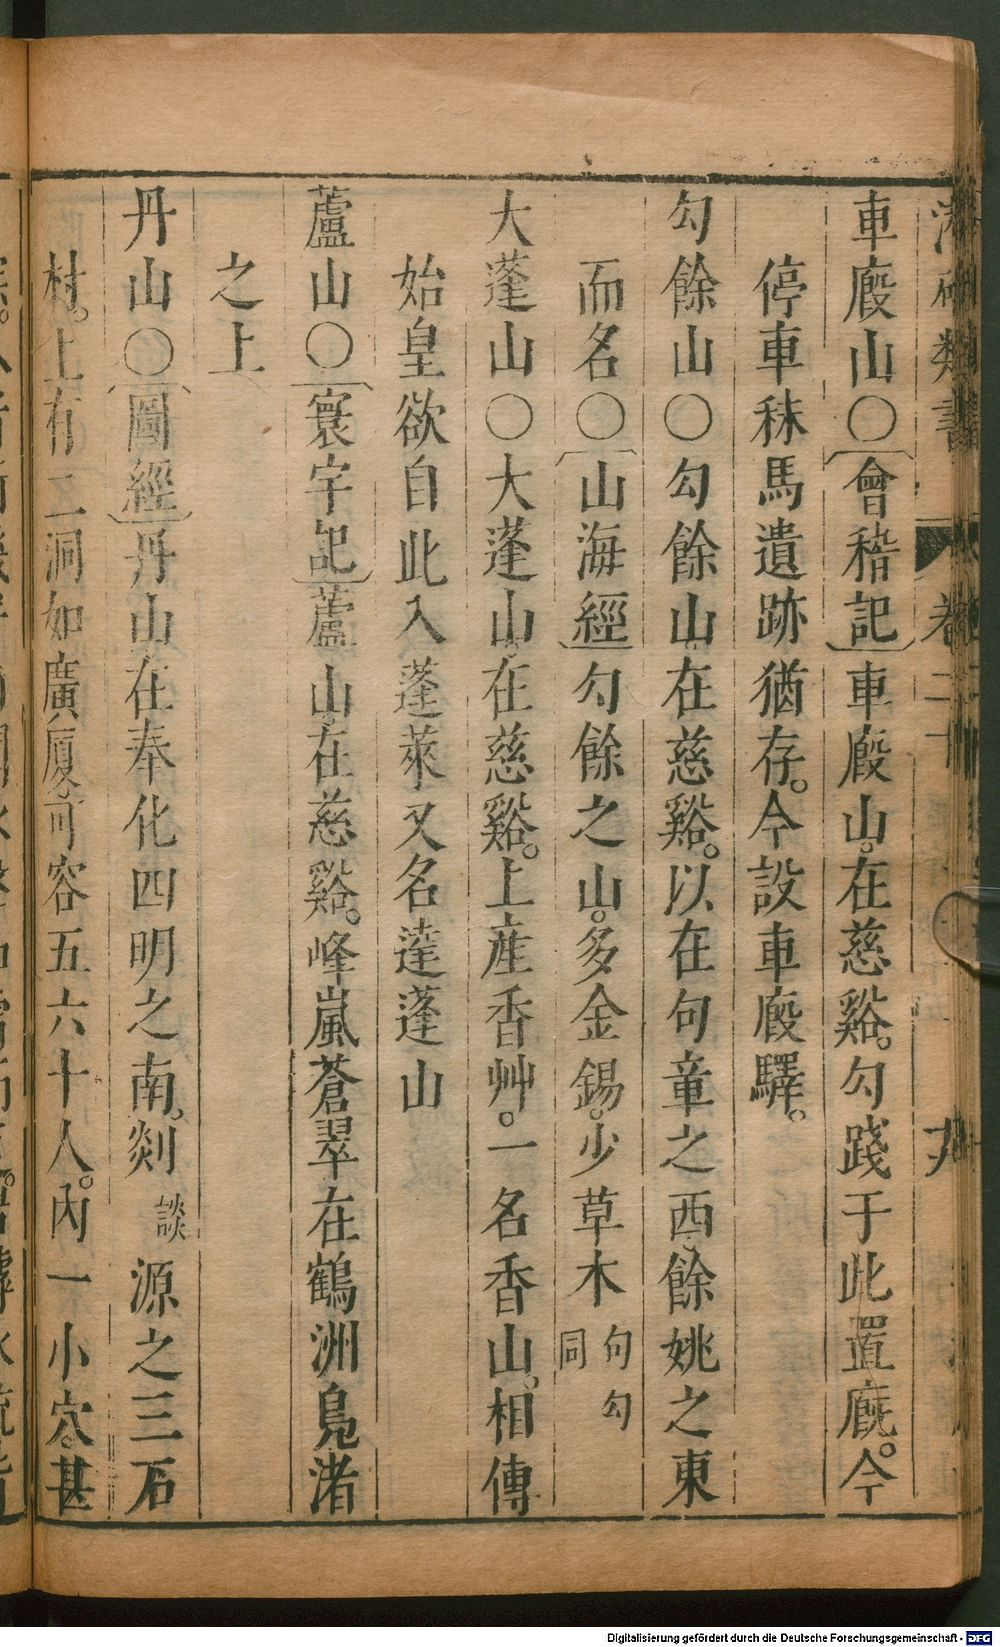 車廄山〇〔會稽記〕車廄山。在慈谿。勾踐于此置廐。今
停車秣馬遺跡猶存。今設車廄驛。
勾餘山〇勾餘山。在慈谿。以在句章之西。餘姚之東
而名〇〔山海經〕勾餘之山。多金錫。少草木句勾同
大蓬山〇大蓬山。在慈谿。上産香艸。一名香山。相傳
始皇欲自此入蓬萊又名達蓬山
蘆山〇〔寰宇記〕蘆山在慈谿。峰嵐蒼翠在鶴洲鳧渚
之上
丹山〇〔圖經〕丹山在奉化四明之南。剡談源之三石
村。上有二洞如廣廈可容五六十人。內一小穴。甚
Digitalisierung gefördert durch die Deutsche Forschungsgemeinschaft - DFG